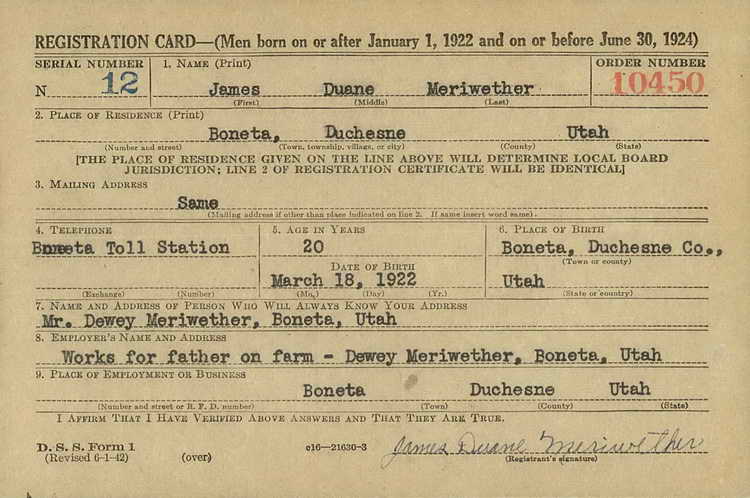 REGISTRATION CARD—(Men born on or after January 1, 1922 and on or before June 30, 1924)
SERIAL NUMBER 1. NAME (Print) ORDER NUMBER
N 12 James Duane Meriwether 10450
(First) (Middle) (Last)
2. PLACE OF RESIDENCE (Print)
Boneta, Duchesne Utah
(Number and street) (Town, township, village, or city) (County) (State)
[THE PLACE OF RESIDENCE GIVEN ON THE LINE ABOVE WILL DETERMINE LOCAL BOARD
JURISDICTION; LINE 2 OF REGISTRATION CERTIFICATE WILL BE IDENTICAL]
3. MAILING ADDRESS
Same
(Mailing address if other than place indicated on line 2. If same insert word same).
4. TELEPHONE 5. AGE IN YEARS 6. PLACE OF BIRTH
Toll Station 20 Boneta, Duchesne Co.,
(Town or county)
DATE OF BIRTH
March 18, 1922 Utah
(Exchange) (Number) (Mo.) (Day) (Yr.) (State or country)
7. NAME AND ADDRESS OF PERSON WHO WILL ALWAYS KNOW YOUR ADDRESS
Mr. Dewey Meriwether, Boneta, Utah
8. EMPLOYER'S NAME AND ADDRESS
Works for father on farm - Dewey Meriwether, Boneta, Utah
9. PLACE OF EMPLOYMENT OR BUSINESS
Boneta Duchesne Utah
(Number and street or R. F. D. number) (Town) (County) (State)
I AFFIRM THAT I HAVE VERIFIED ABOVE ANSWERS AND THAT THEY ARE TRUE.
D. S. S. Form 1
(Revised 6-1-42) (over) c16—21630-3 James Duane Meriwether
(Registrant's signature)